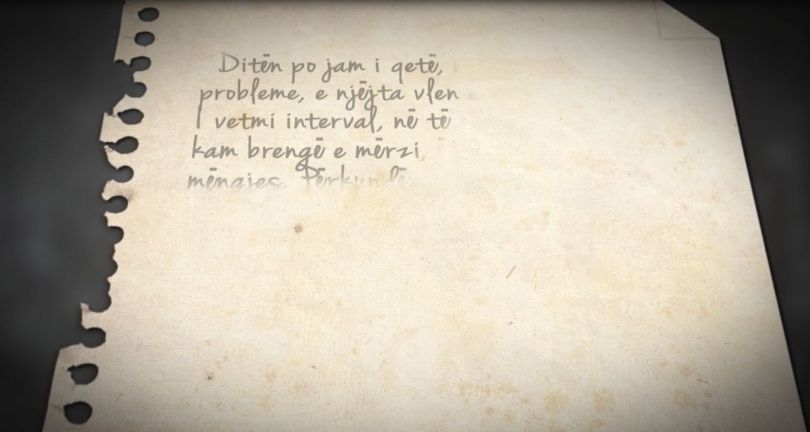 Ditën po jam i qetë,
probleme, e njëjta vlen
I vetmi interval, në të
kam brengë e mërzi,
mëngjes. Përkundë